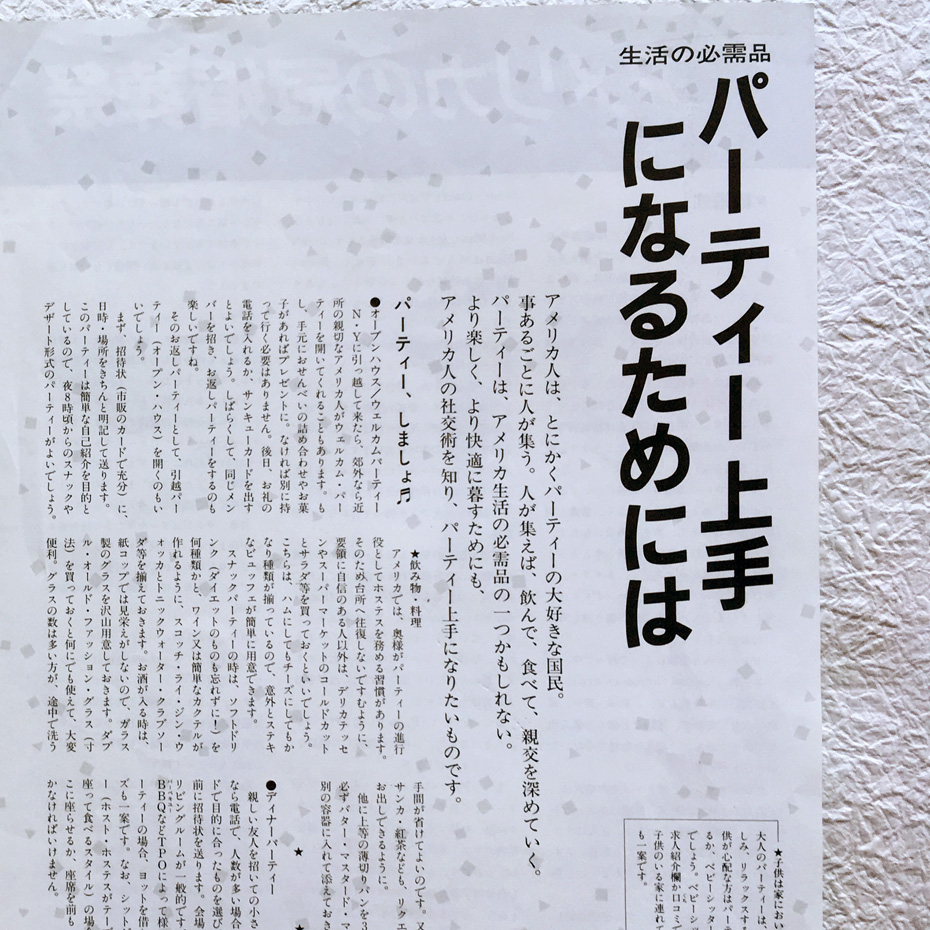 生活の必需品
パーティー上手
になるためには
アメリカ人は、とにかくパーティーの大好きな国民。
事あるごとに人が集う。人が集えば、飲んで、食べて、親交を深めていく。
パーティーは、アメリカ生活の必需品の一つかもしれない。
より楽しく、より快適に暮すためにも、
アメリカ人の社交術を知り、パーティー上手になりたいものです。
パーティー、しましょ♬
●オープンハウス／ウェルカムパーティー
N・Yに引っ越して来たら、郊外なら近
所の親切なアメリカ人がウェルカム・パー
ティーを開いてくれることもあります。も
し、手元におせんべいの詰め合わせやお菓
子があればプレゼントに。なければ別に持
って行く必要はありません。後日、お礼の
電話を入れるか、サンキューカードを出す
とよいでしょう。しばらくして、同じメン
バーを招き、お返しパーティーをするのも
楽しいですね。
そのお返しパーティーとして、引越パー
ティー（オープン・ハウス）を開くのもい
いでしょう。
まず、招待状（市販のカードで充分）に、
日時・場所をきちんと明記して送ります。
このパーティーは簡単な自己紹介を目的と
しているので、夜8時頃からのスナックや
デザート形式のパーティーがよいでしょう。
★飲み物・料理
アメリカでは、奥様がパーティーの進行
役としてホステスを務める習慣があります。
そのため台所へ往復しないですむように、
要領に自信のある人以外は、デリカテッセ
ンやスーパーマーケットのコールドカット
とサラダ等を買っておくといいでしょう。
こちらは、ハムにしてもチーズにしてもか
なり種類が揃っているので、意外とステキ
なビュッフェが簡単に用意できます。
スナックパーティーの時は、ソフトドリ
ンク（ダイエットのものも忘れずに！）を
何種類かと、ワイン又は簡単なカクテルが
作れるように、スコッチ・ライ・ジン・ウ
オッカとトニックウォーター・クラブソー
ダ等を揃えておきます。お酒が入る時は、
紙コップでは見栄えがしないので、ガラス
製のグラスを沢山用意しておきます。ダブ
ル・オールド・ファッション・グラス（寸
法）を買っておくと何にでも使えて、大変
便利。グラスの数は多い方が、途中で洗う
手間が省けてよいのです。又
サンカ・紅茶なども、リクエ
お出しできるように。
他に上等の薄切りパンを3
必ずバター・マスタード・マ
別の容器に入れて添えておき
★
●ディナーパーティー
親しい友人を招いての小さ
なら電話で、人数が多い場合
ドで目的に合ったものを選び
前に招待状を送ります。会場
リビングルームが一般的です
BBQなどTPOによって様
ーティーの場合、ヨットを借
ズも一案です。なお、シット
ー（ホスト・ホステスがテー
座って食べるスタイル）の場
ここに座らせるか、座席を前も
かなければいけません。
★子供は家におい
大人のパーティーは、
しみ、リラックスする
供が心配な方はパーテ
るか、ベビーシッター
でしょう。ベビーシッ
求人紹介欄か口コミで
子供のいる家に連れて
も一案です。